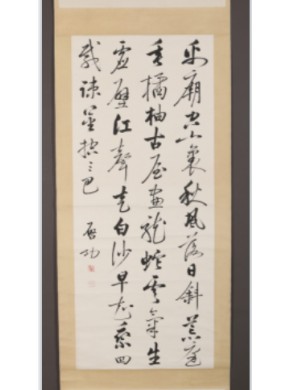 禹廟空山裏秋風落日斜荒庭
垂橘柚古屋畫龍蛇雲氣生
虚壁江聲走白沙早知乘四
載疎鑿控三巴
启功